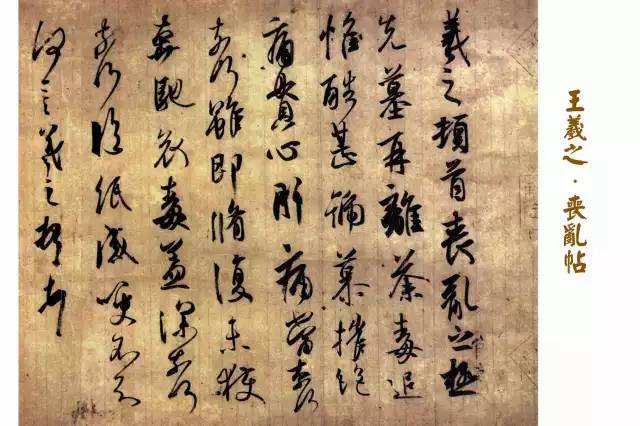 羲之頓首喪亂之極
先墓再離荼毒追
惟酷甚號慕摧絕
痛貫心肝痛當奈何
奈何雖即脩復未獲
奔馳哀毒益深奈何
奈何臨紙感哽不知
何言羲之頓首頓首
王羲之·喪亂帖